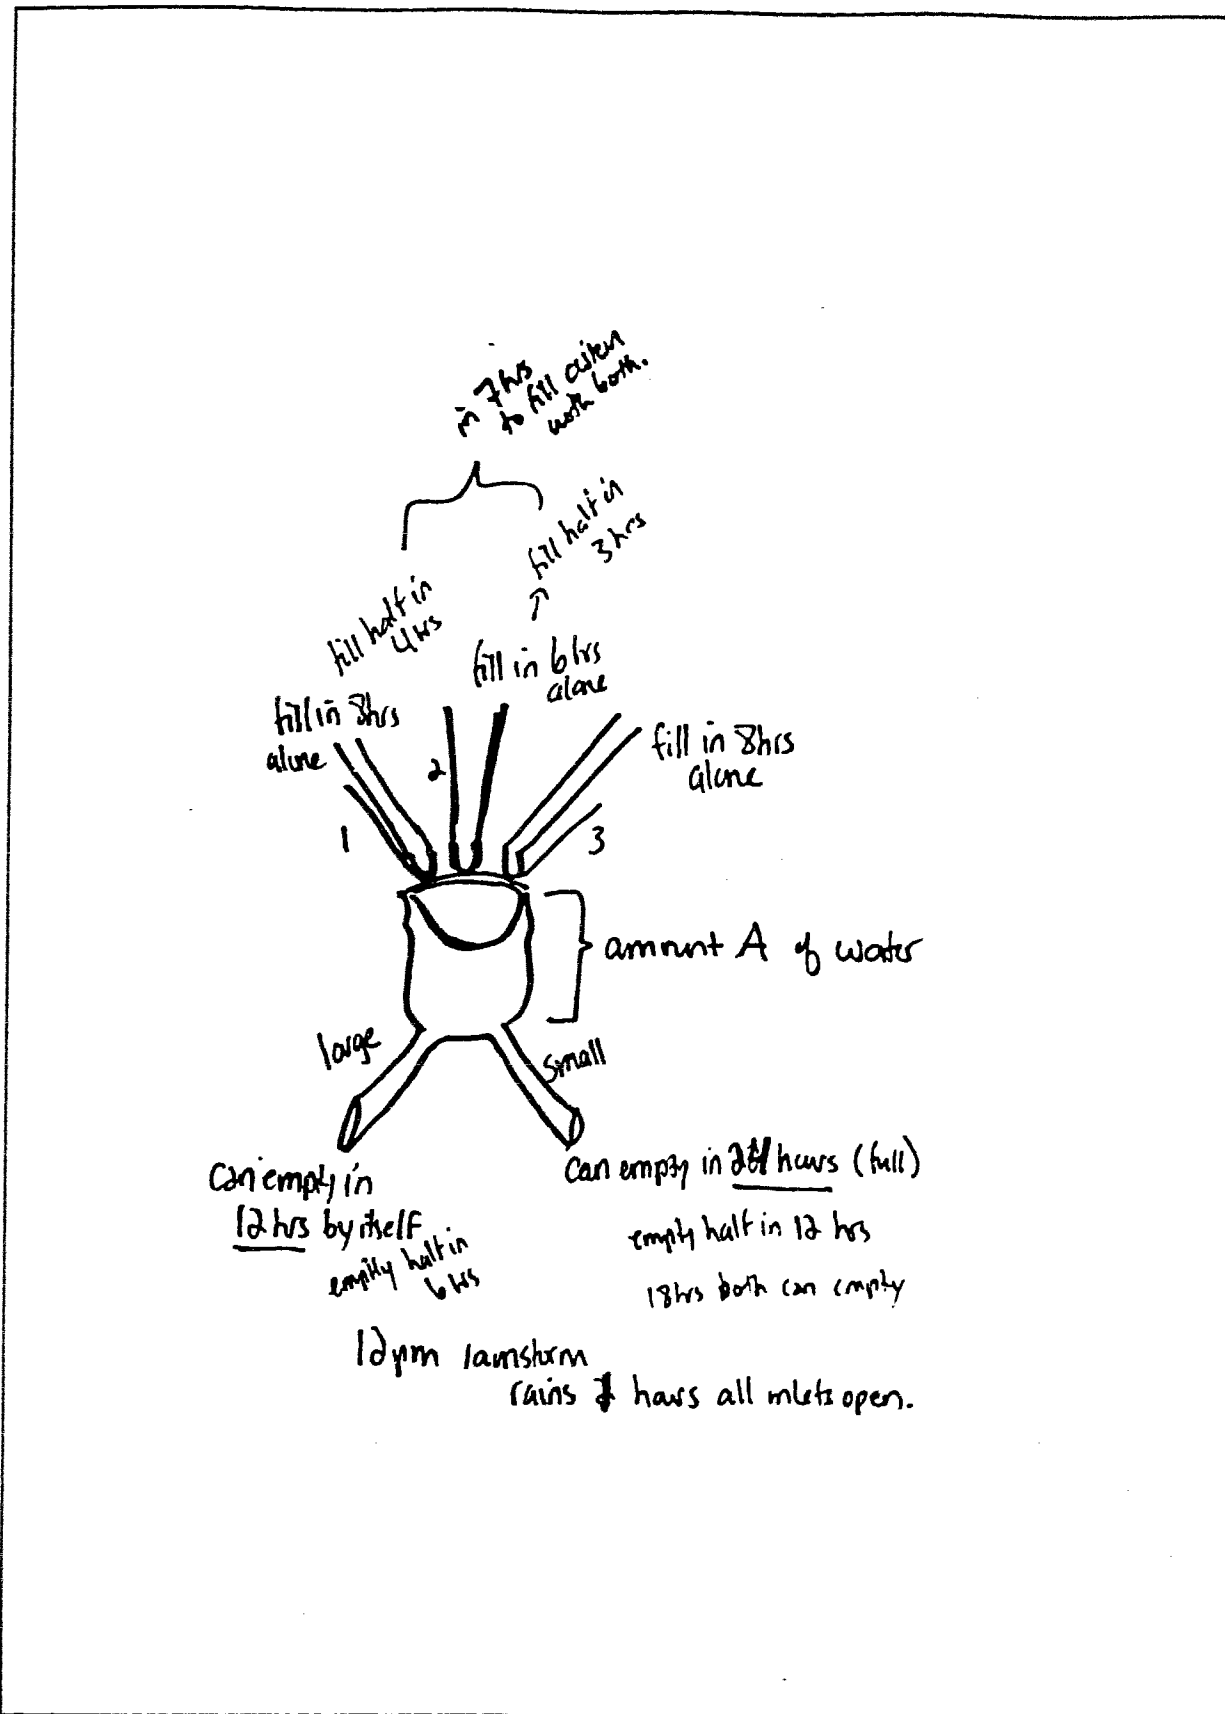 in 7hrs
to fill cistern
with both.
fill half in
3 hrs
fill half in
4 hrs
fill in 6 hrs
alone
fill in 8hrs
alone
fill in 8hrs
alone
1
2
3
amount A of water
large
small
can empty in
12 hrs by itself
empty half in
6 hrs
can empty in 24 hours (full)
empty half in 12 hrs
18hrs both can empty
12pm rainstorm
rains hours all inlets open.